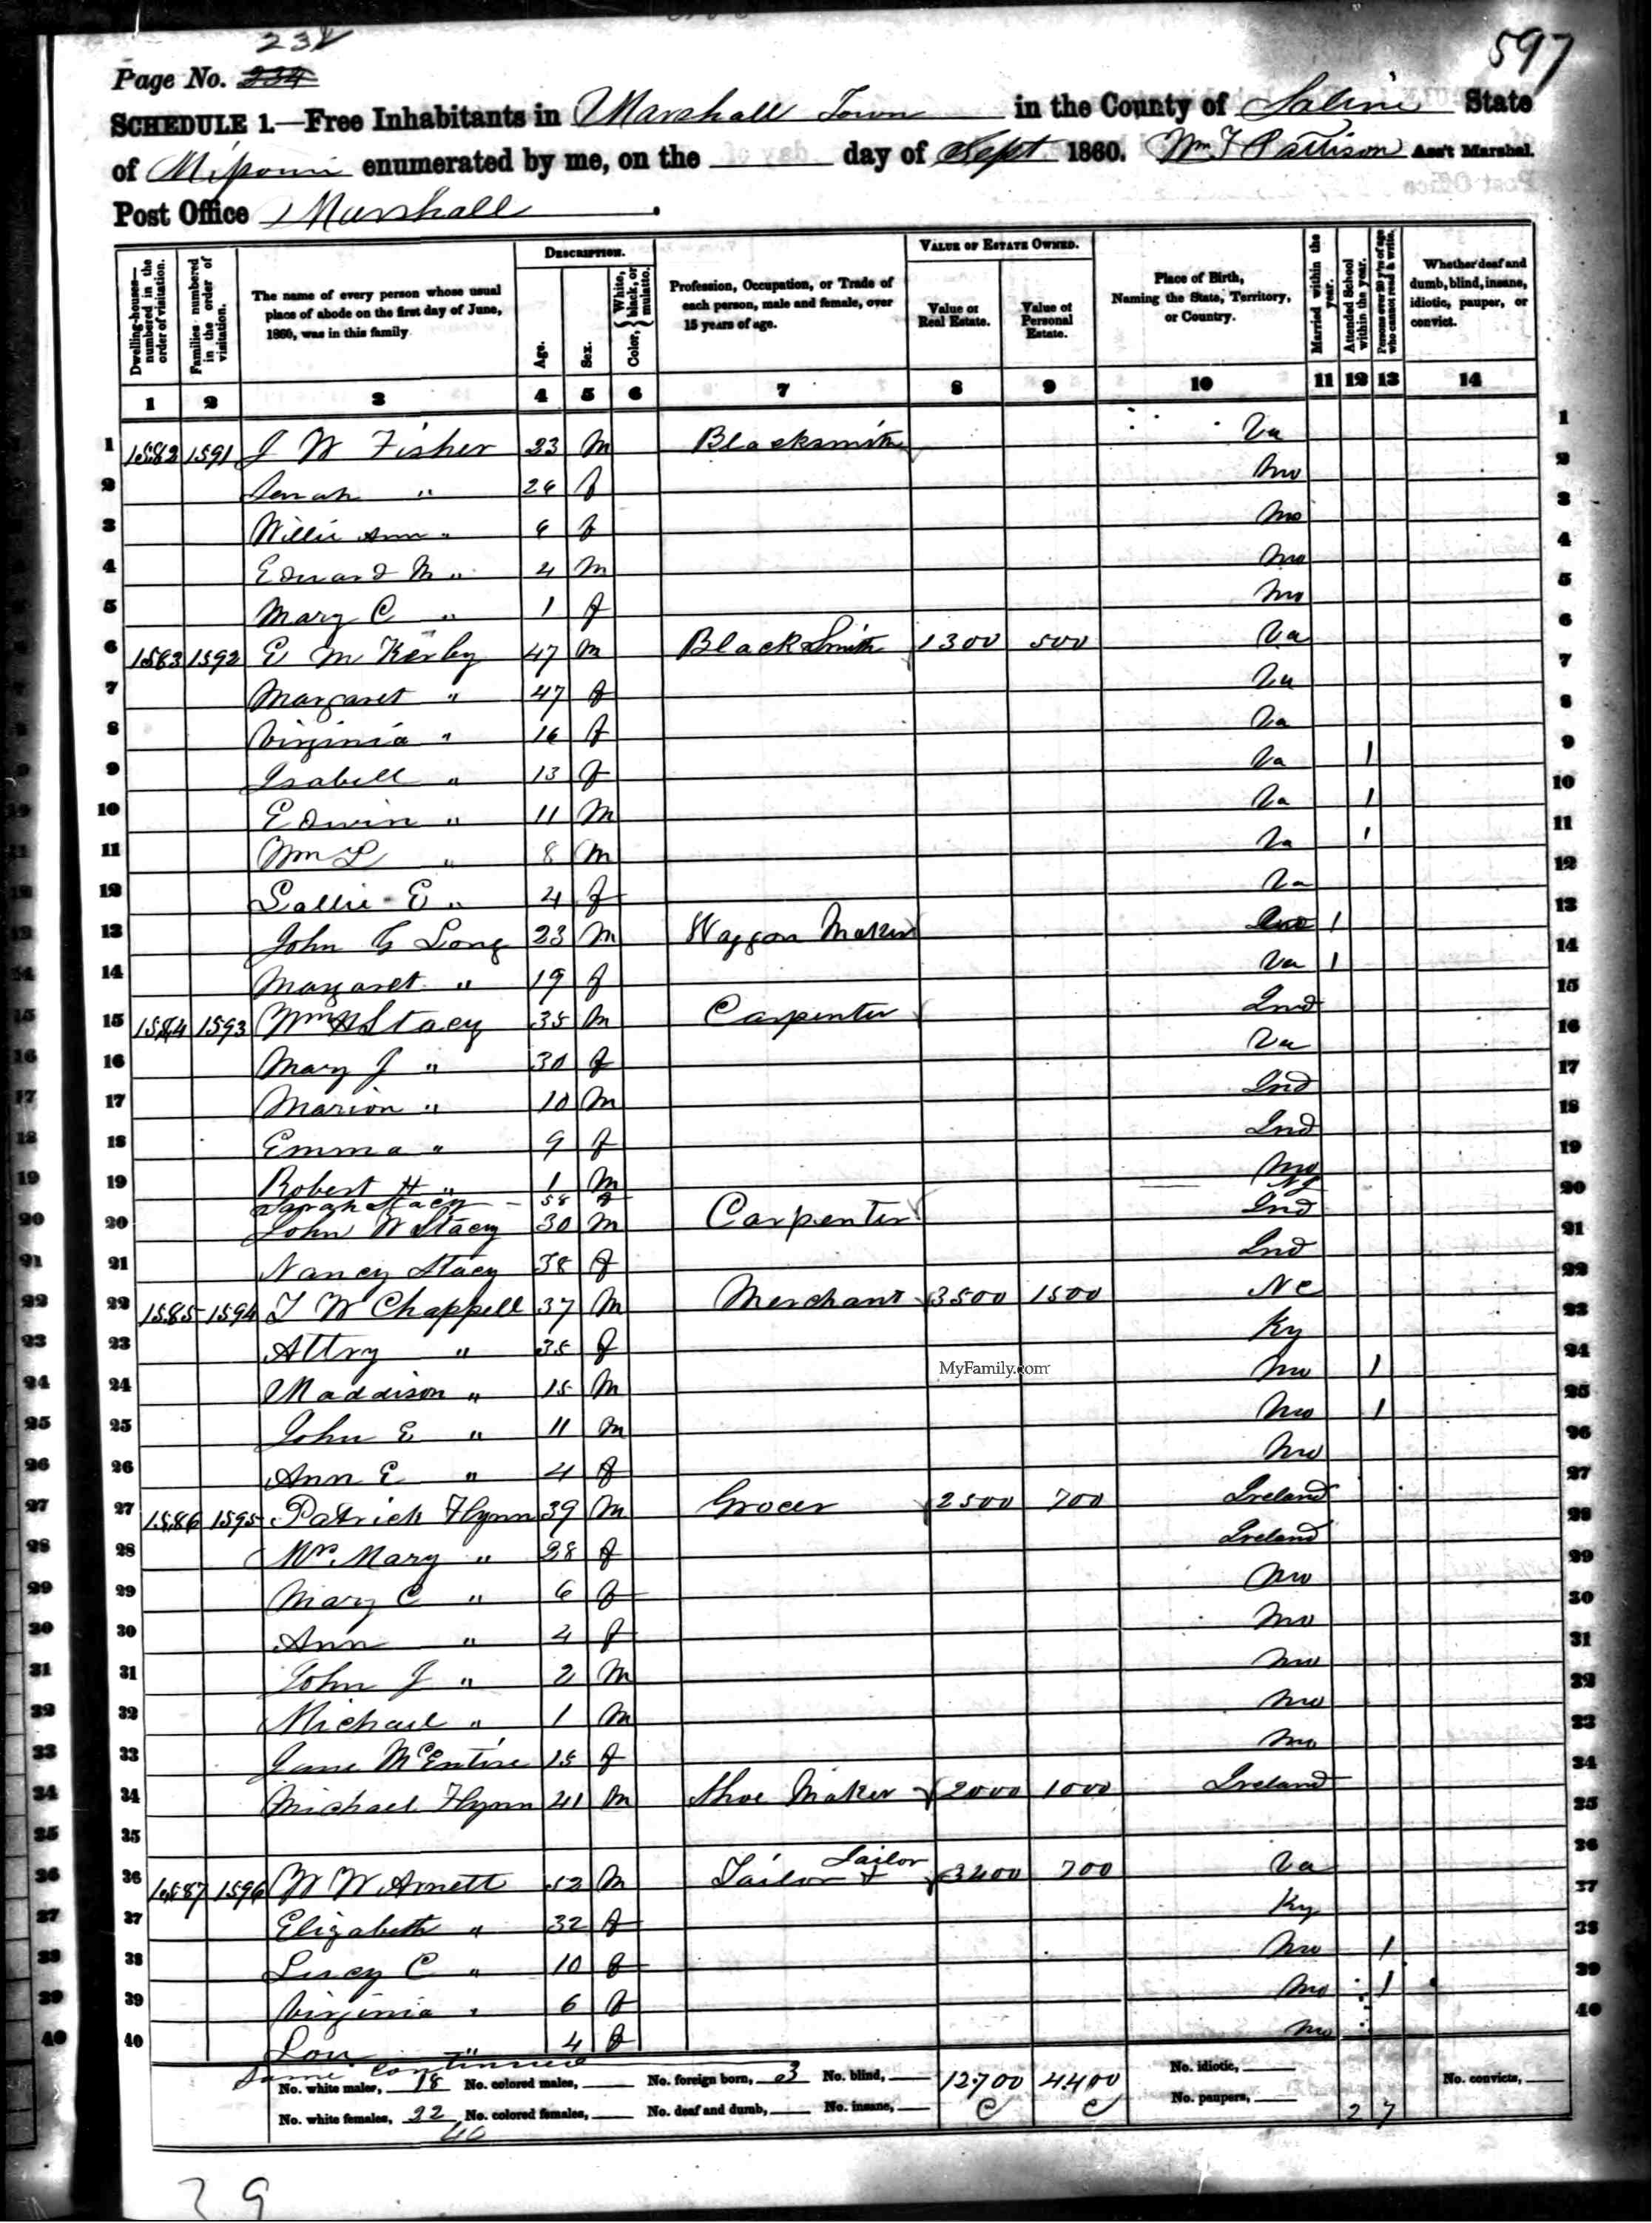 232
597
Page No. 234
SCHEDULE 1.—Free Inhabitants in Marshall Town in the County of Saline State
of Missouri enumerated by me, on the day of Sept 1860. Wm F Pattison Ass't Marshal.
Post Office Marshall.
Dwelling-houses—numbered in the order of visitation.
Families numbered in the order of visitation.
The name of every person whose usual place of abode on the first day of June, 1860, was in this family
DESCRIPTION.
Age.
Sex.
Color, { White, black, or mulatto.
Profession, Occupation, or Trade of each person, male and female, over 15 years of age.
VALUE OF ESTATE OWNED.
Value of Real Estate.
Value of Personal Estate.
Place of Birth, Naming the State, Territory, or Country.
Married within the year.
Attended School within the year.
Persons over 20 y'rs of age who cannot read & write.
Whether deaf and dumb, blind, insane, idiotic, pauper, or convict.
1 2 3 4 5 6 7 8 9 10 11 12 13 14
1 1582 1591 J W Fisher 23 m Blacksmith Va 1
2 Sarah " 24 f Mo 2
3 Willie Ann " 6 f Mo 3
4 Edward M " 4 m Mo 4
5 Mary C " 1 f Mo 5
6 1583 1592 E M Kerby 47 m BlackSmith 1300 500 Va 6
7 Margaret " 47 f Va 7
8 Virginia " 16 f Va 8
9 Isabell " 13 f Va 1 9
10 Edwin " 11 m Va 1 10
11 Wm L " 8 m Va 1 11
12 Sallie E " 4 f Va 12
13 John G Long 23 m Waggon Maker 1 13
14 Margaret " 19 f Va 1 14
15 1584 1593 Wm H Stacy 35 m Carpenter Ind 15
16 Mary J " 30 f Va 16
17 Marion " 10 m Ind 17
18 Emma " 9 f Ind 18
19 Robert H " 1 m Mo 19
Sarah Stacy 58 f
20 John W Stacy 30 m Carpenter Ind 20
21 Nancy Stacy 38 f Ind 21
22 1585 1594 T W Chappell 37 m Merchant 3500 1500 NC 22
23 Attry " 35 f Ky 23
MyFamily.com
24 Maddison " 15 m Mo 1 24
25 John E " 11 m Mo 1 25
26 Ann E " 4 f Mo 26
27 1586 1595 Patrick Flynn 39 m Grocer 2500 700 Ireland 27
28 Mrs. Mary " 28 f Ireland 28
29 Mary C " 6 f Mo 29
30 Ann " 4 f Mo 30
31 John J " 2 m Mo 31
32 Michael " 1 m Mo 32
33 Jane McEntire 15 f Mo 33
34 Michael Flynn 41 m Shoe Maker 2000 1000 Ireland 34
35 35
36 1587 1596 W W Arnett 52 m Tailor Tailor 3400 700 Va 36
37 Elizabeth " 32 f Ky 37
38 Lucy C " 10 f Mo 1 38
39 Virginia " 6 f Mo 1 39
40 Lou " 4 f Mo 40
Same continued
No. white males, 18 No. colored males, No. foreign born, 3 No. blind, 12700 4400 No. idiotic, No. convicts,
No. white females, 22 No. colored females, No. deaf and dumb, No. insane, No. paupers, 2 7
40
29